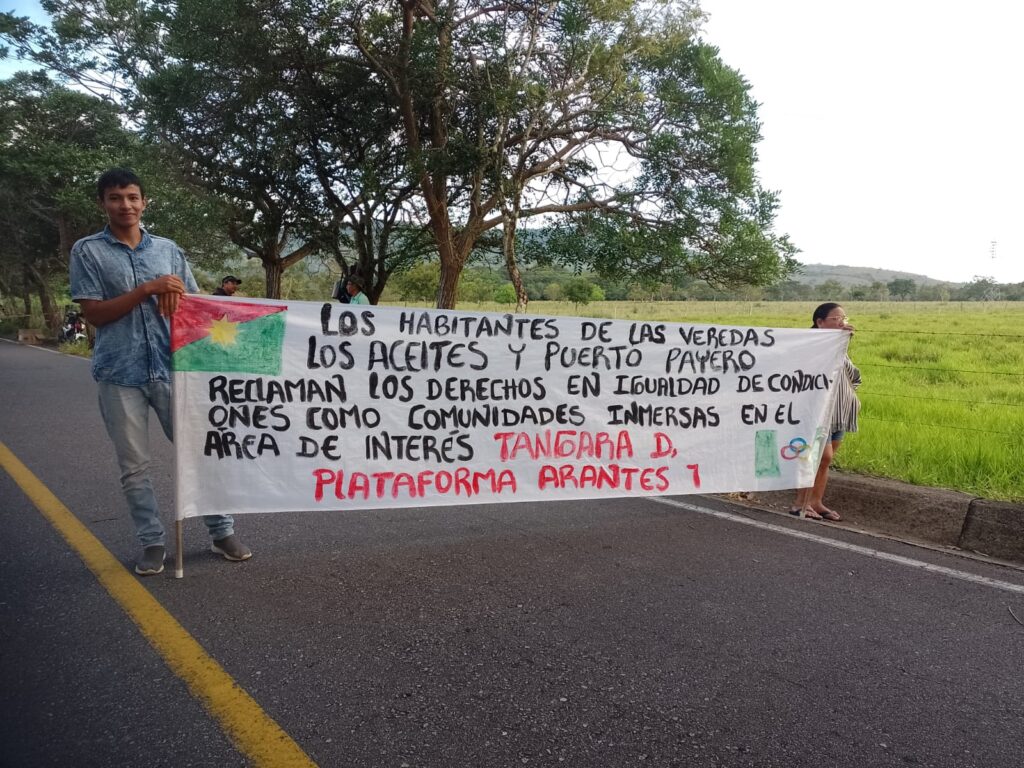 LOS HABITANTES DE LAS VEREDAS
LOS ACEITES Y PUERTO PAYERO
RECLAMAN LOS DERECHOS EN IGUALDAD DE CONDICI-
ONES COMO COMUNIDADES INMERSAS EN EL
ÁREA DE INTERÉS TANGARA D,
PLATAFORMA ARANTES 1